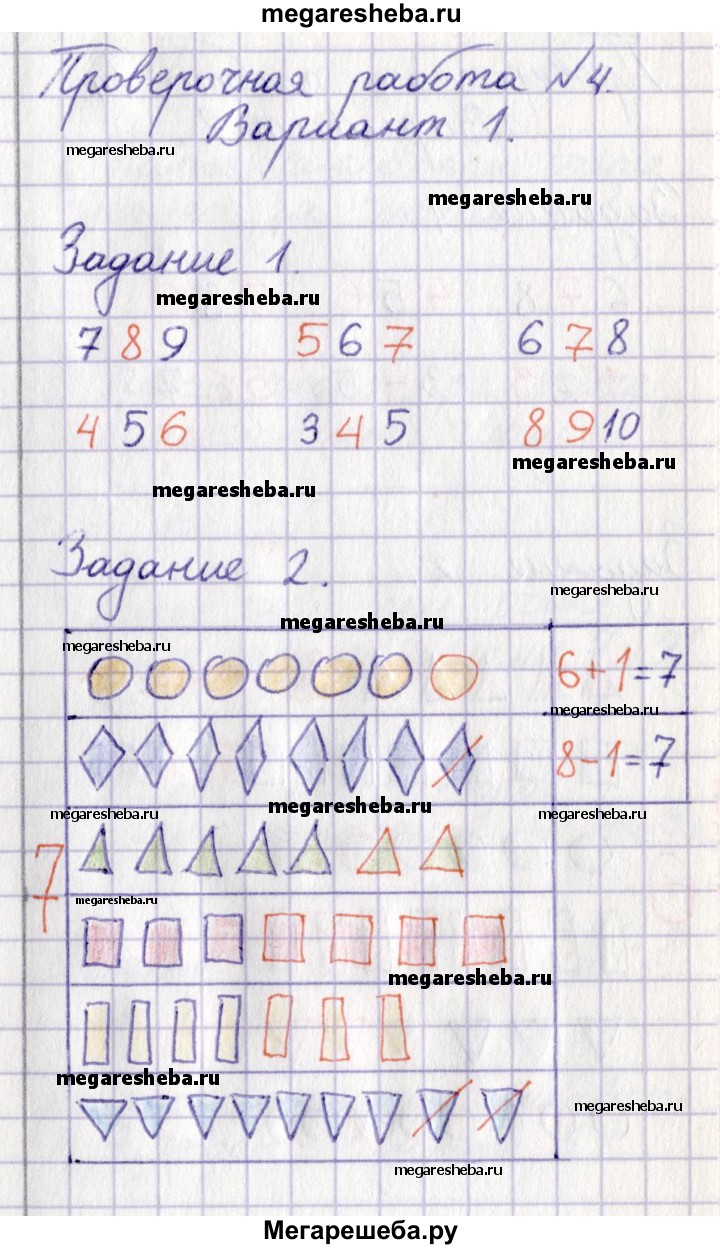 megaresheba.ru
Проверочная работа №4.
Вариант 1.
megaresheba.ru
megaresheba.ru
Задание 1.
megaresheba.ru
7 8 9 5 6 7 6 7 8
4 5 6 3 4 5 8 9 10
megaresheba.ru
megaresheba.ru
Задание 2.
megaresheba.ru
megaresheba.ru
megaresheba.ru
6+1=7
megaresheba.ru
8-1=7
megaresheba.ru
megaresheba.ru
megaresheba.ru
7
megaresheba.ru
megaresheba.ru
megaresheba.ru
megaresheba.ru
megaresheba.ru
Мегарешеба.ру